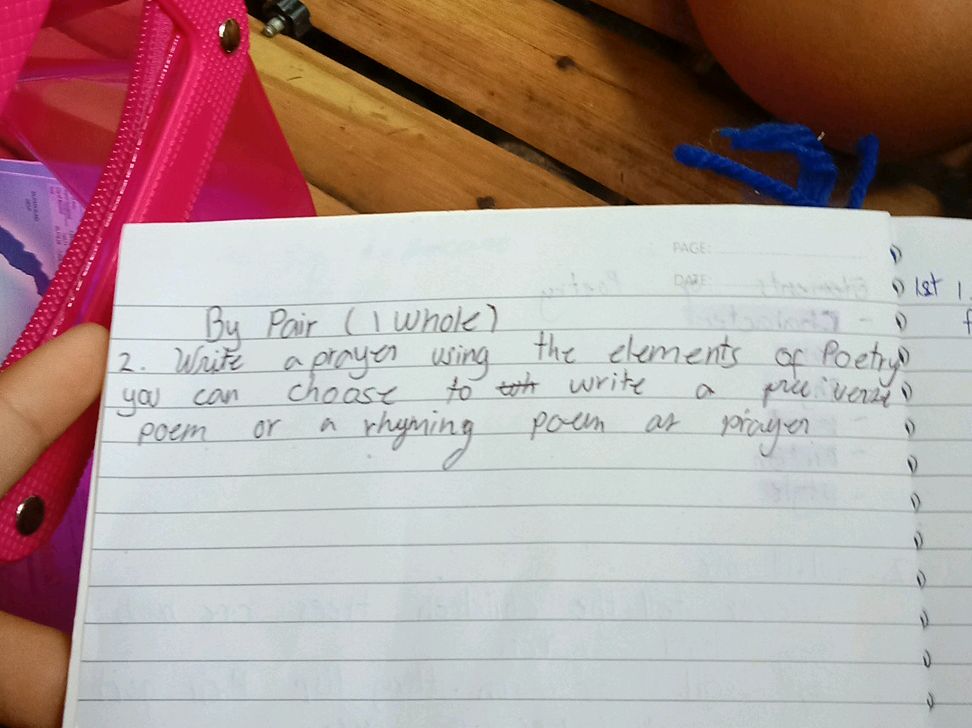 PAGE:
DATE:
1st
By Pair (1 whole)
2. Write a prayer using the elements of Poetry
you can choose to write a free verse
poem or a rhyming poem as prayer